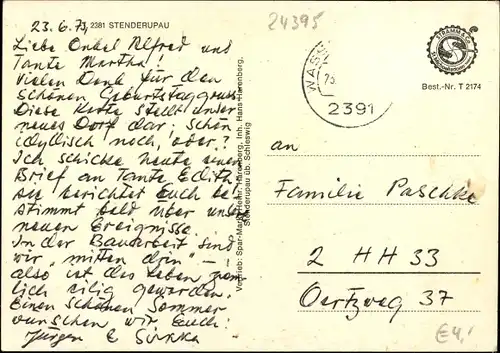 23.6.75, 2381 STENDERUPAU
Liebe Onkel Alfred und
Tante Martha!
Vielen Dank für den
schönen Geburtstagsgruss.
Diese Karte stellt unser
neues Dorf dar: schön
idyllisch noch, oder?
Ich schicke heute einen
Brief an Tante Edith;
sie berichtet Euch be-
stimmt bald über unse
neuen Ereignisse.
In der Bauarbeit sind
wir „mitten drin" –!
also ist das Leben ziem-
lich eilig geworden.
Einen schönen Sommer
wünschen wir Euch!
Jürgen &
Vertrieb: Spar-Markt Heinr. Harenberg, Inh. Hans Harenberg,
Stenderupau üb. Schleswig
24395
WASS
2391
STRAMM & Co.
Best.-Nr. T 2174
an
Familie Paschke
2 HH 33
Oertzweg 37
€4,-